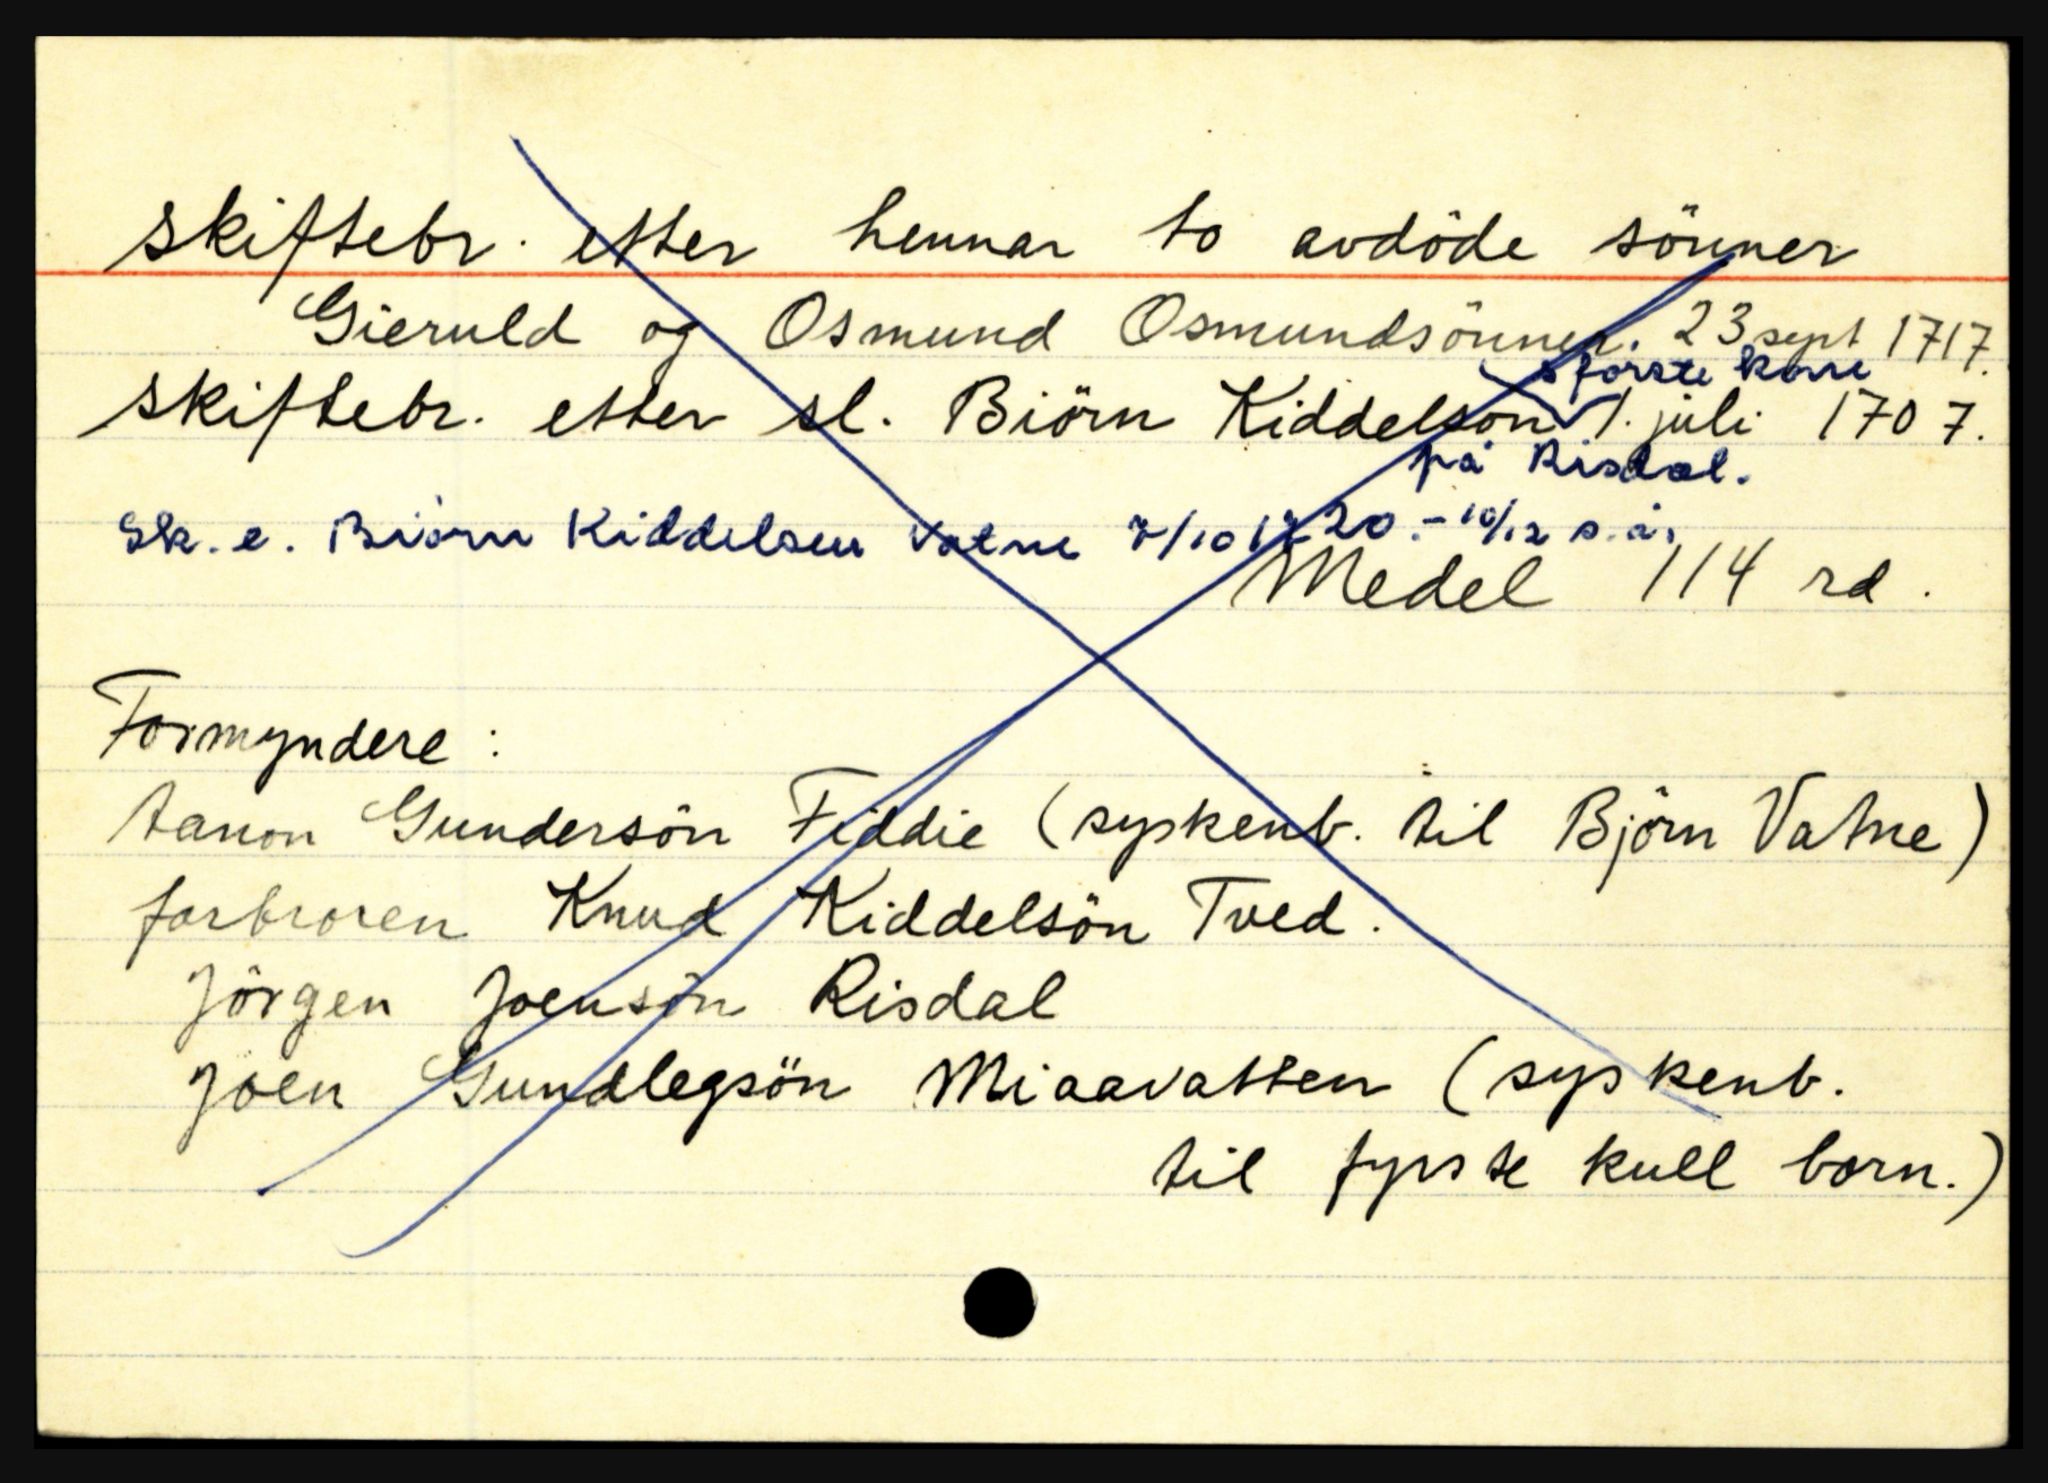 skiftebr. etter hennar to avdöde sönner
Gieruld og Osmund Osmundsönner. 23 sept 1717.
s förste kone
skiftebr. etter sl. Biörn Kiddelsön 1. juli 1707.
på Risdal.
Sk. e. Biörn Kiddelsen Vatne 7/10 1720. - 10/12 s. å.
Medel 114 rd.
Formyndere:
Aanon Gundersön Fiddie (syskenb. til Björn Vatne)
farbroren Knud Kiddelsön Tved.
Jörgen Joensön Risdal
Joen Gundlegsön Miaavatten (syskenb.
til fyrste kull born.)